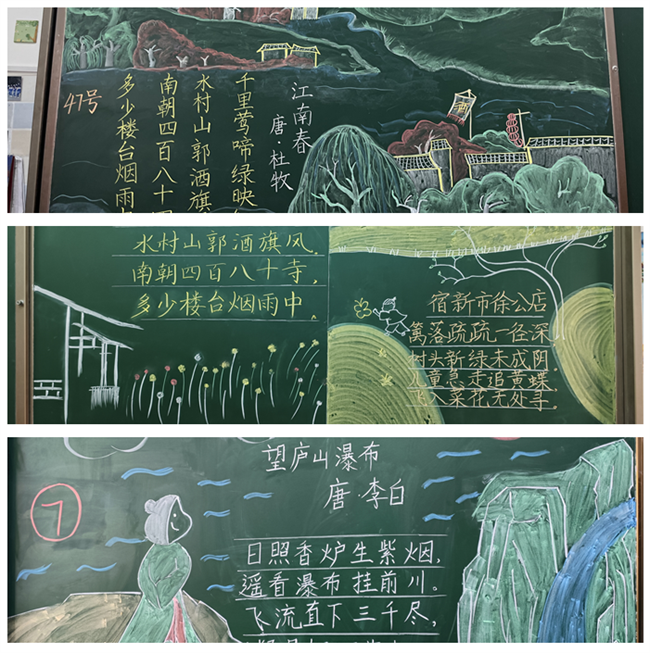 47号
江南春
唐·杜牧
千里莺啼绿映
水村山郭酒旗
南朝四百八十
多少楼台烟雨
酒
水村山郭酒旗风,
南朝四百八十寺,
多少楼台烟雨中。
宿新市徐公店
篱落疏疏一径深,
树头新绿未成阴。
儿童急走追黄蝶,
飞入菜花无处寻。
7
望庐山瀑布
唐·李白
日照香炉生紫烟,
遥看瀑布挂前川。
飞流直下三千尺,